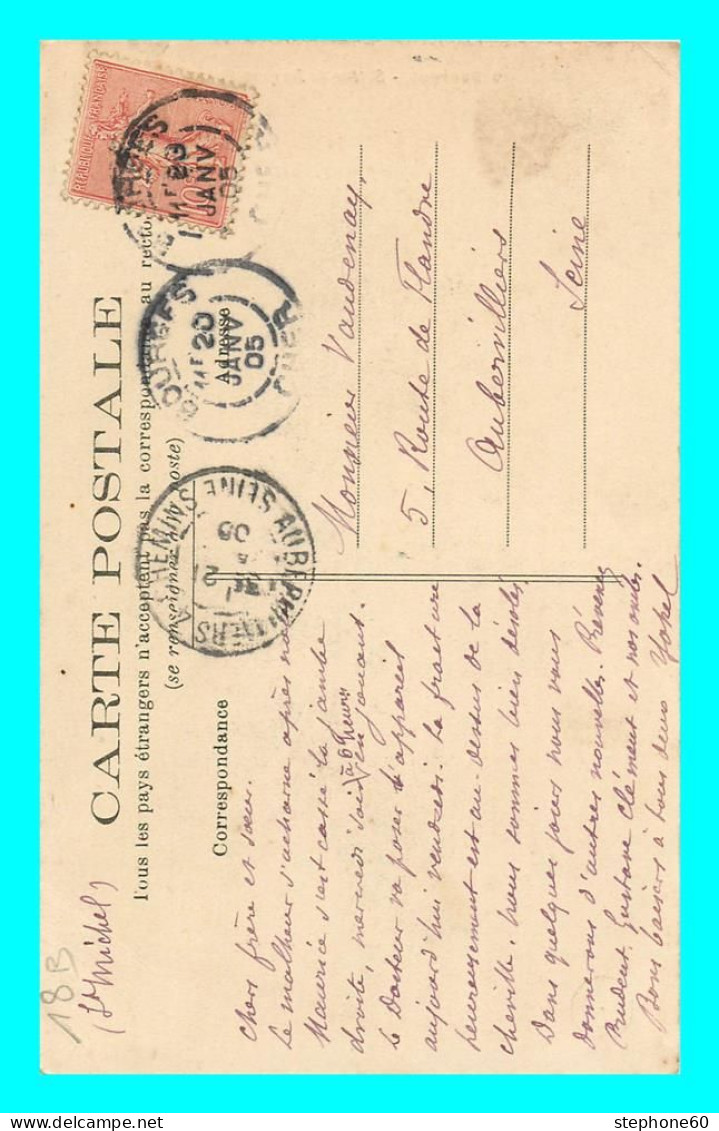 18B
(St Michel)
CARTE POSTALE
Tous les pays étrangers n'acceptent pas la correspondance au recto
(se renseigner à la poste)
Correspondance
Adresse
REPUBLIQUE FRANÇAISE
10
BOURGES
20
JANV
05
CHER
BOURGES
20
JANV
05
CHER
AUBERVILLIERS 4 CHEMINS SEINE
21
05
Chers frère et sœur.
Le malheur s'acharne après nous
Maurice s'est cassé la jambe
à 6 heures
droite, mercredi soir en jouant.
le Docteur va poser l'appareil
aujourd'hui vendredi. La fracture
heureusement est au-dessus de la
cheville. nous sommes bien désolés
Dans quelques jours nous vous
donnerons d'autres nouvelles. Prévenez
Prudent. Gustave Clément et nos amis.
Bons baisers à tous deux
Monsieur Vaudenay,
5, Route de Flandre
Aubervilliers
Seine
stephone60